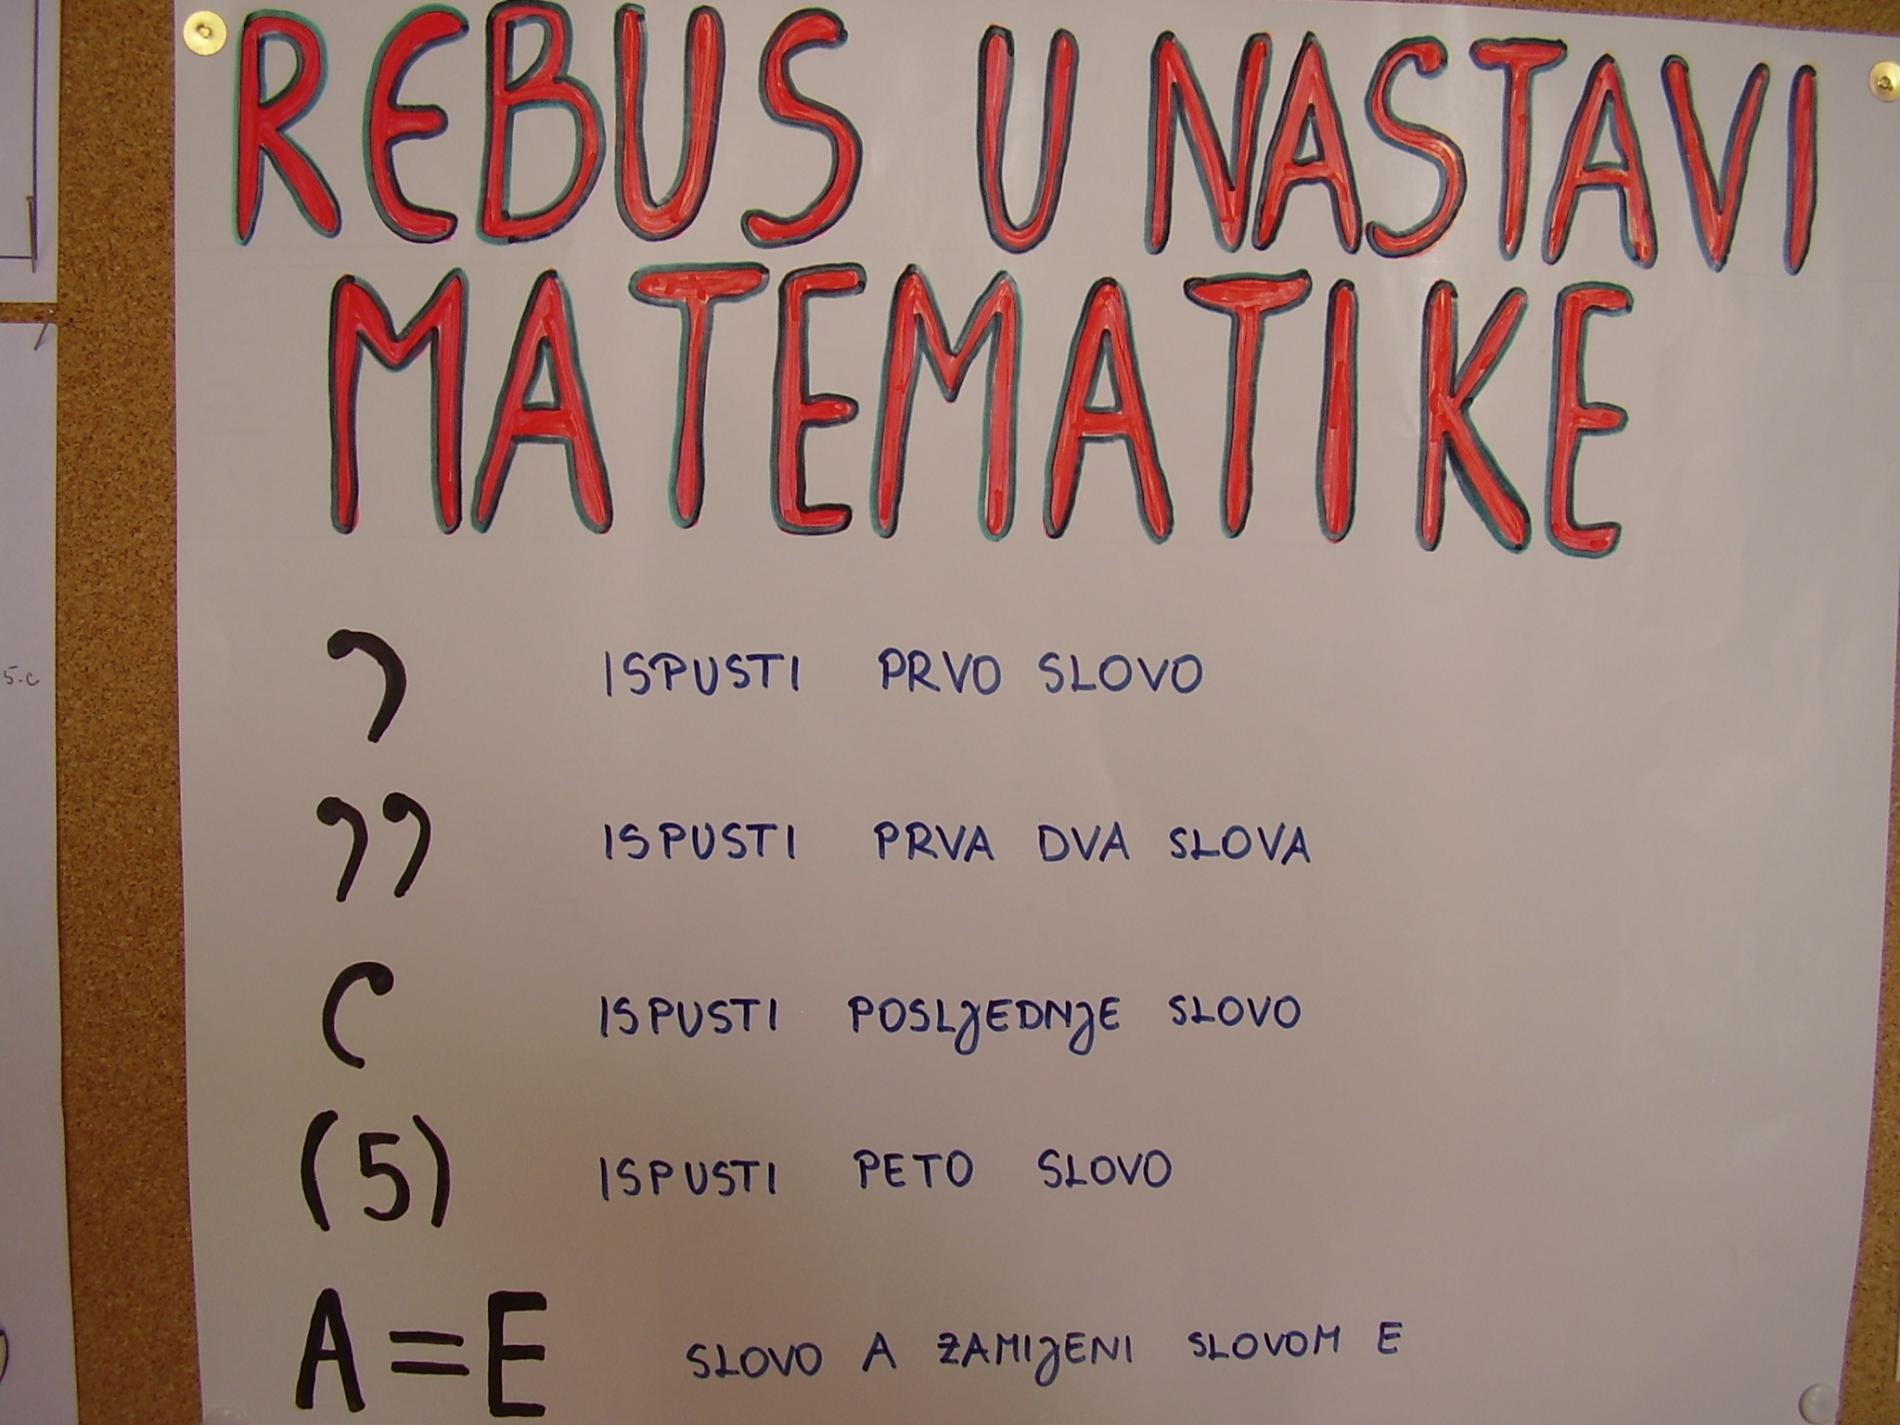 REBUS U NASTAVI
MATEMATIKE
, ISPUSTI PRVO SLOVO
,, ISPUSTI PRVA DVA SLOVA
‘ ISPUSTI POSLJEDNJE SLOVO
(5) ISPUSTI PETO SLOVO
A=E SLOVO A ZAMIJENI SLOVOM E
5.c